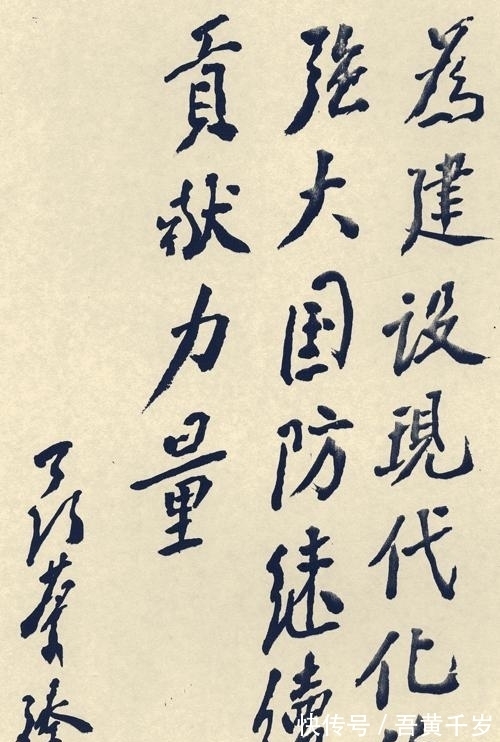 為建设現代化
强大国防继續
貢献力量
快传号 / 吾黄千岁